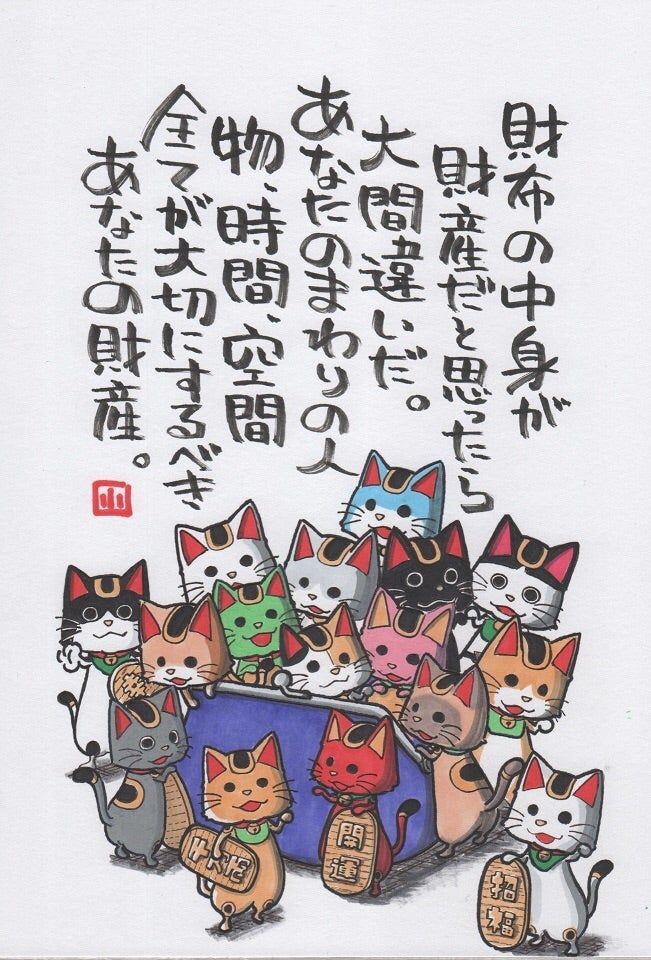 財布の中身が
財産だと思ったら
大間違いだ。
あなたのまわりの人
物、時間、空間
全てが大切にするべき
あなたの財産。
開運
招福